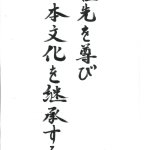 先を尊び
本文化を継承する